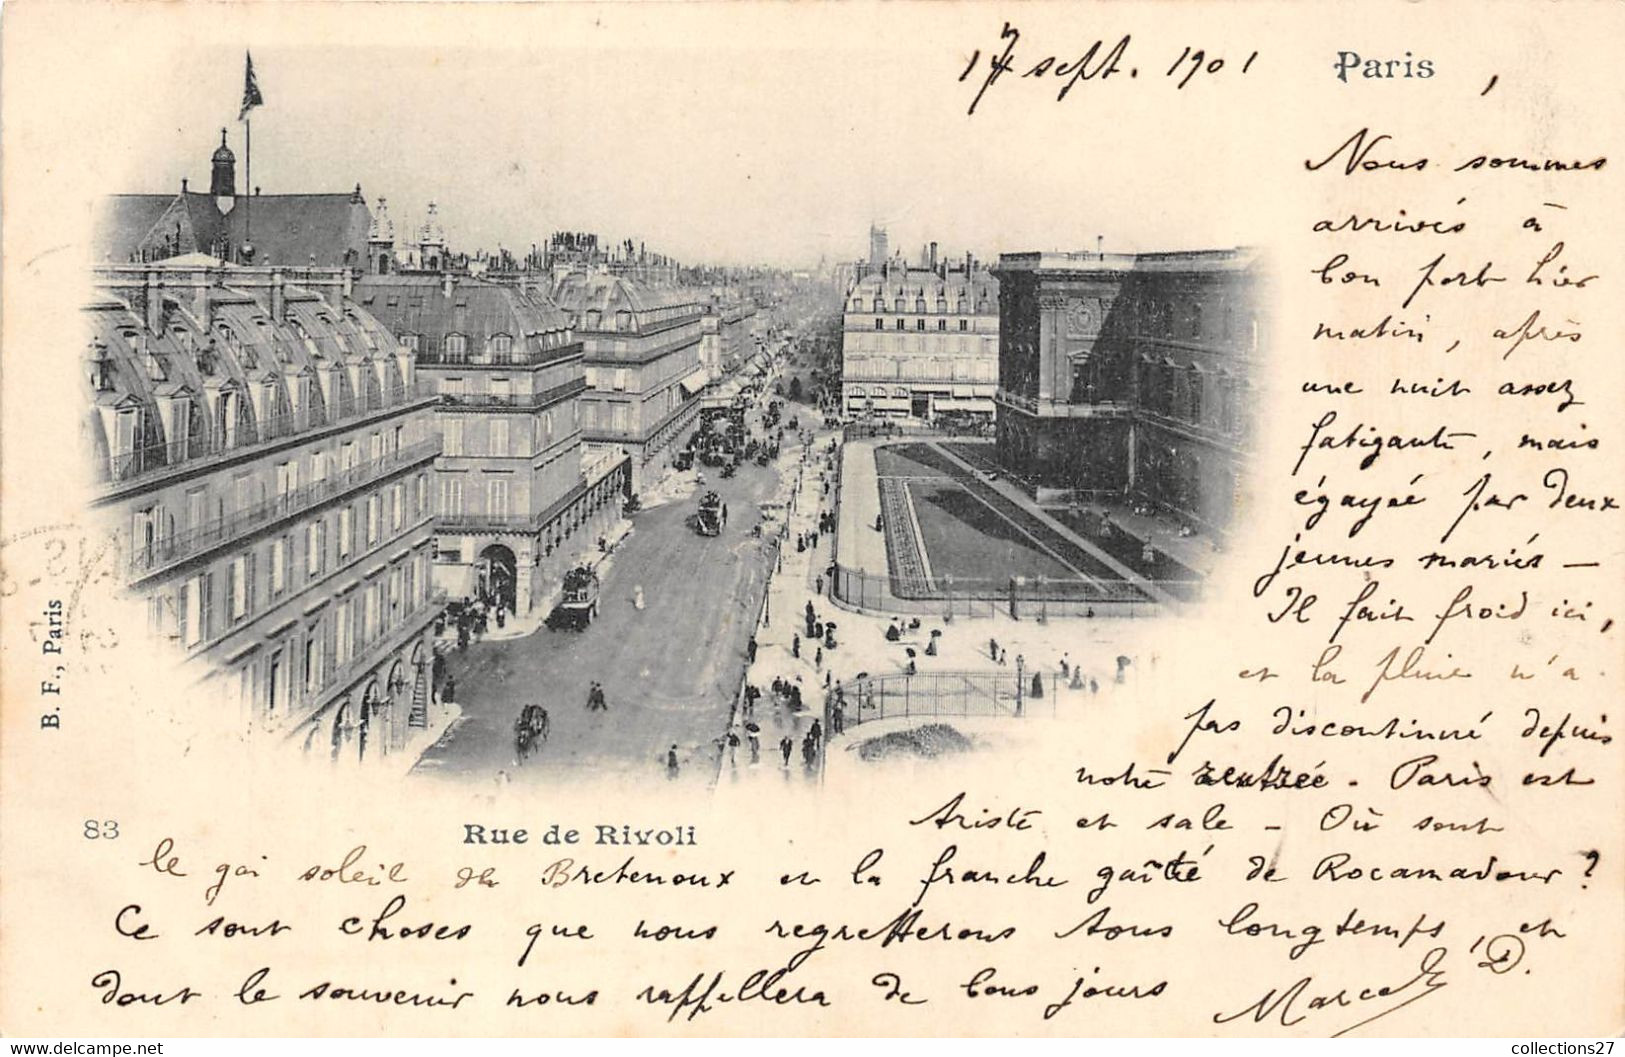 17 sept. 1901 Paris,
Nous sommes
arrivés à
bon port hier
matin, après
une nuit assez
fatigante, mais
égayée par deux
jeunes mariés —
Il fait froid ici,
et la pluie n'a
pas discontinué depuis
notre rentrée. Paris est
triste et sale - Où sont
83
Rue de Rivoli
B. F., Paris
le gai soleil de Bretenoux et la franche gaîté de Rocamadour ?
Ce sont choses que nous regretterons tous longtemps, et
dont le souvenir nous rappellera de bons jours
Marcel D.
collections27